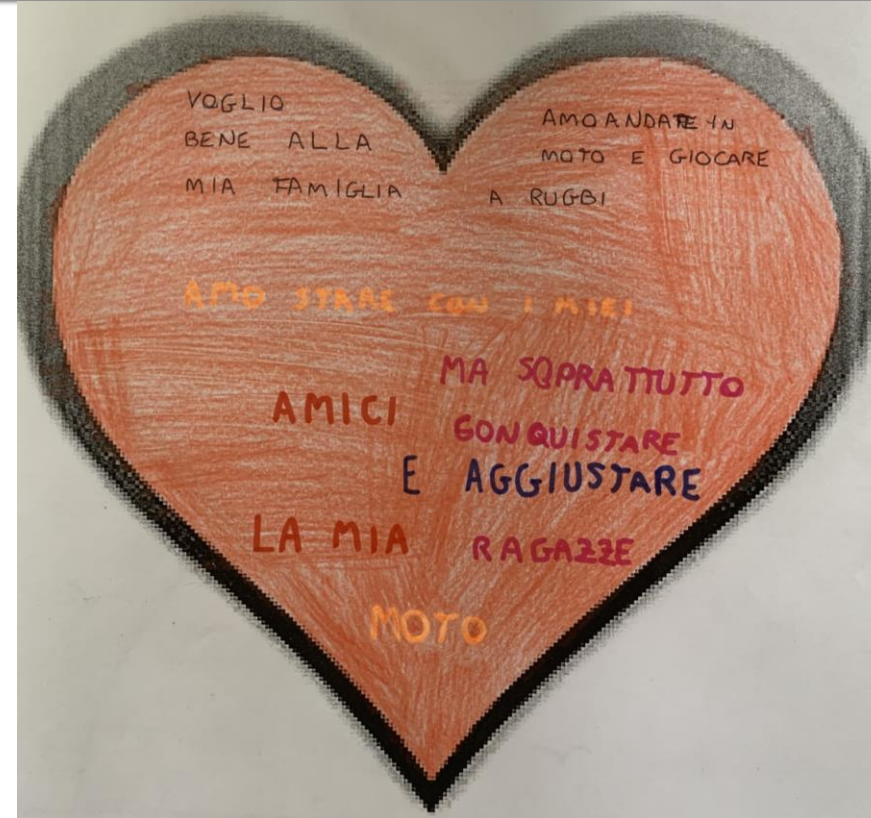 VOGLIO
BENE ALLA
MIA FAMIGLIA
AMO ANDATE IN
MOTO E GIOCARE
A RUGBI
AMO STARE CON I MIEI
AMICI
MA SOPRATTUTTO
CONQUISTARE
E AGGIUSTARE
LA MIA
RAGAZZE
MOTO